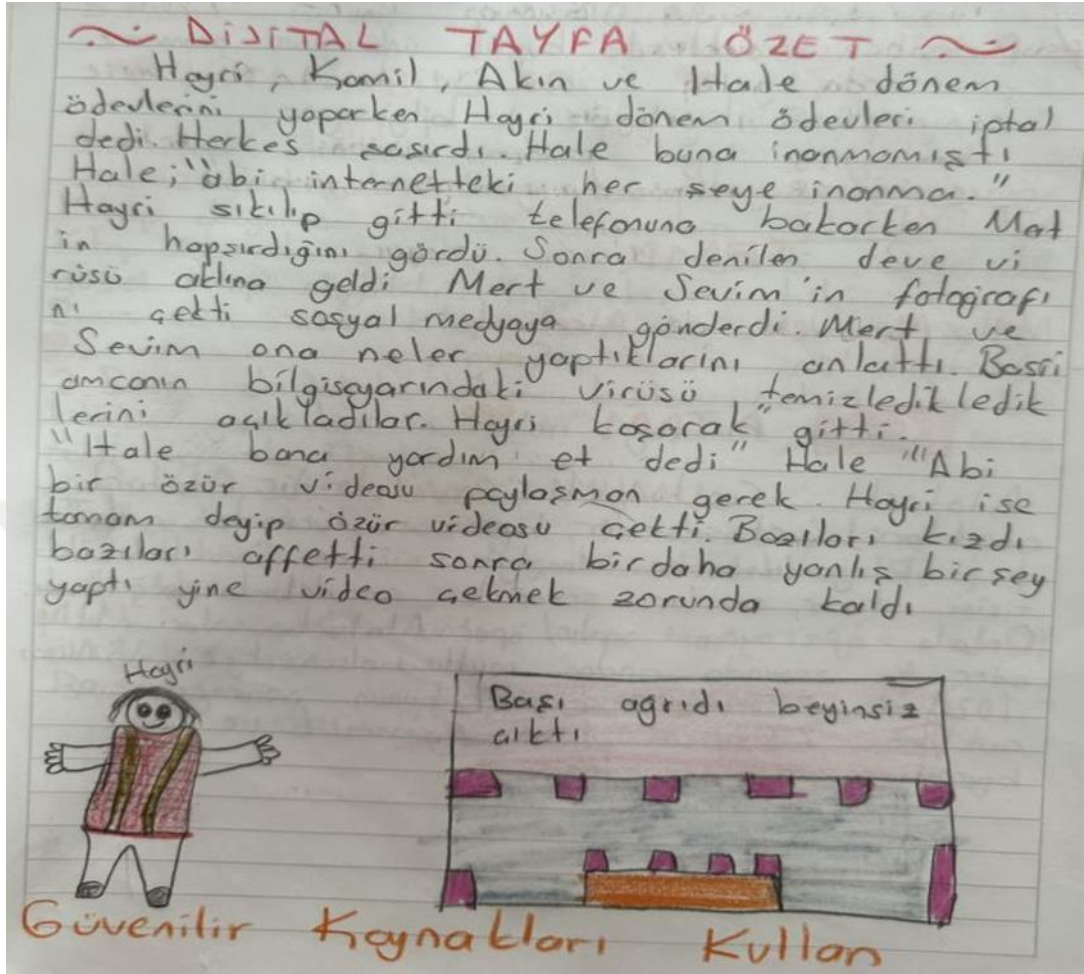 ~ DİJİTAL TAYFA ÖZET ~
Hayri, Kamil, Akın ve Hale dönem
ödevlerini yaparken Hayri dönem ödevleri iptal
dedi. Herkes şaşırdı. Hale buna inanmamıştı
Hale; "abi internetteki her şeye inanma."
Hayri sıkılıp gitti telefonuna bakarken Mat
in hapşırdığını gördü. Sonra denilen deve vi
rüsü aklına geldi Mert ve Sevim'in fotoğrafı
nı çekti sosyal medyaya gönderdi. Mert ve
Sevim ona neler yaptıklarını anlattı. Basri
amcanın bilgisayarındaki virüsü temizledikledik
lerini açıkladılar. Hayri koşarak gitti.
"Hale bana yardım et dedi" Hale "Abi
bir özür videosu paylaşman gerek. Hayri ise
tamam deyip özür videosu çekti. Bazıları kızdı
bazıları affetti sonra birdaha yanlış birşey
yaptı yine video çekmek zorunda kaldı
Hayri
Başı ağrıdı beyinsiz
çıktı
Güvenilir Kaynakları Kullan